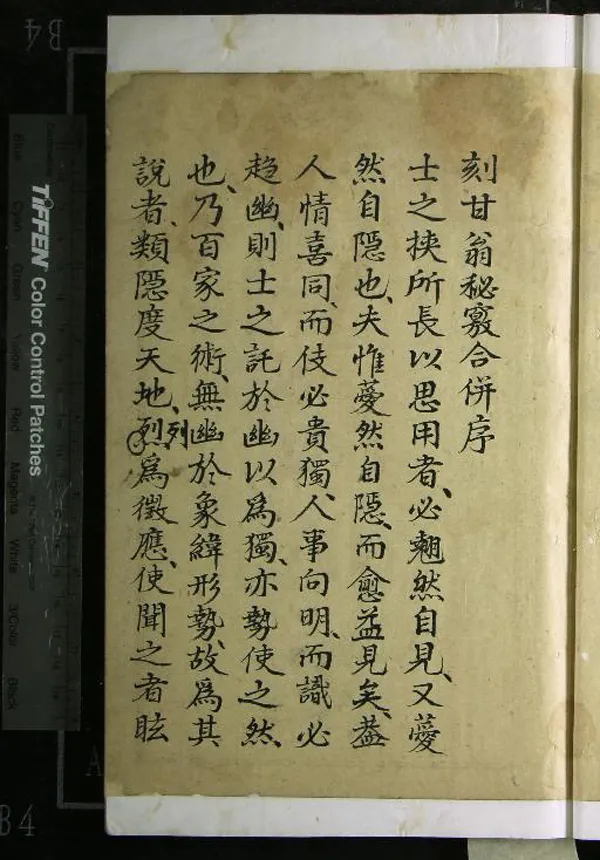 刻甘翁秘竅合併序
士之挾所長以思用者、必翹然自見、又薆
然自隱也、夫惟薆然自隱、而愈益見矣、蓋
人情喜同、而伎必貴獨、人事向明、而識必
趋幽、則士之託於幽以爲獨、亦勢使之然、
也、乃百家之術、無幽於象緯形勢、故爲其
說者、類隱度天地、烈列爲徵應、使聞之者眩
B4
TIFFEN Color Control Patches
Blue
Cyan
Green
Yellow
Red
Magenta
White
3/Color
Black
A
B4